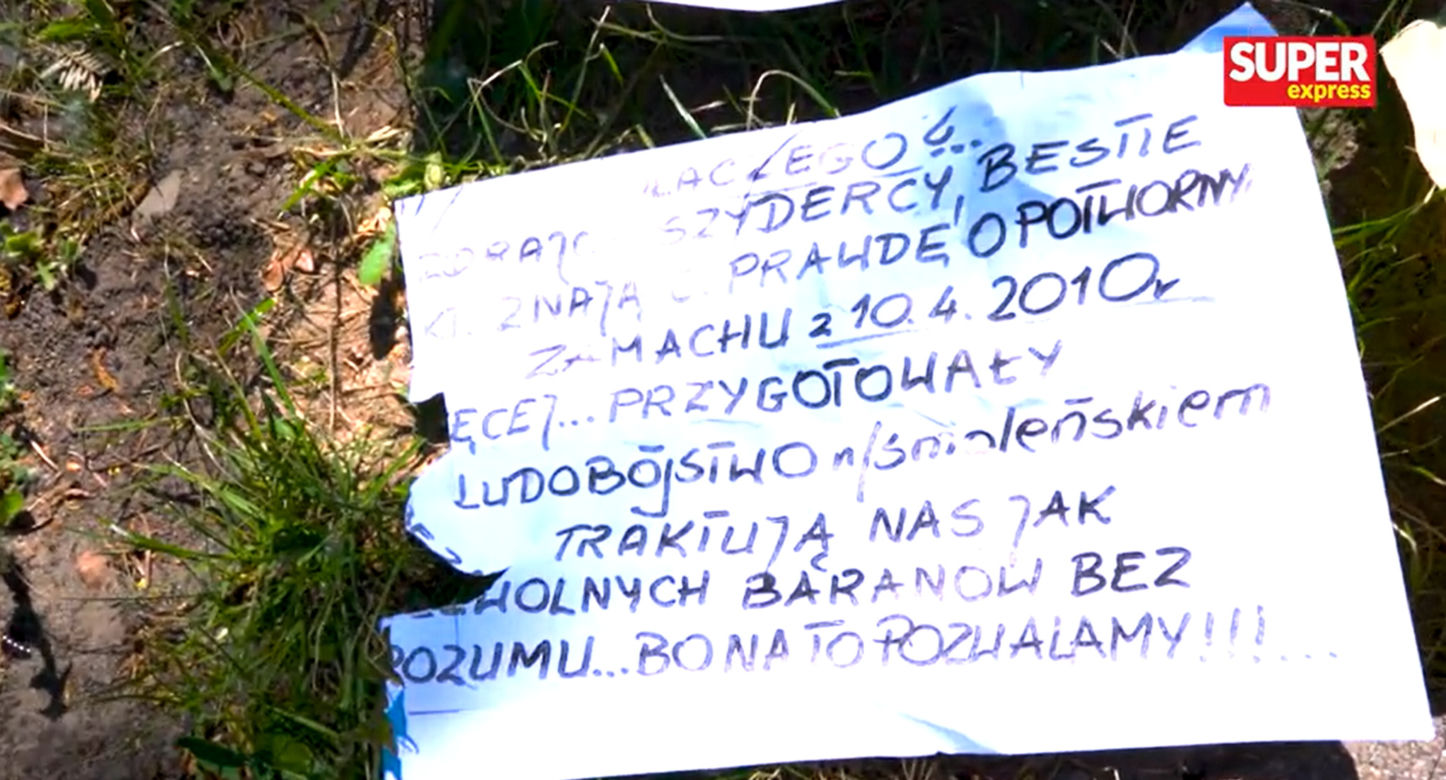 SUPER
express
SZYDERCY, BESTIE
ZNAJĄ PRAWDĘ O POTWORNY
ZAMACHU z 10. 4. 2010r
ĘCEJ... PRZYGOTOWAŁY
LUDOBÓJSTWO n/smoleńskiem
TRAKTUJĄ NAS JAK
WOLNYCH BARANÓW BEZ
ROZUMU... BO NA TO POZWALAMY!!!...